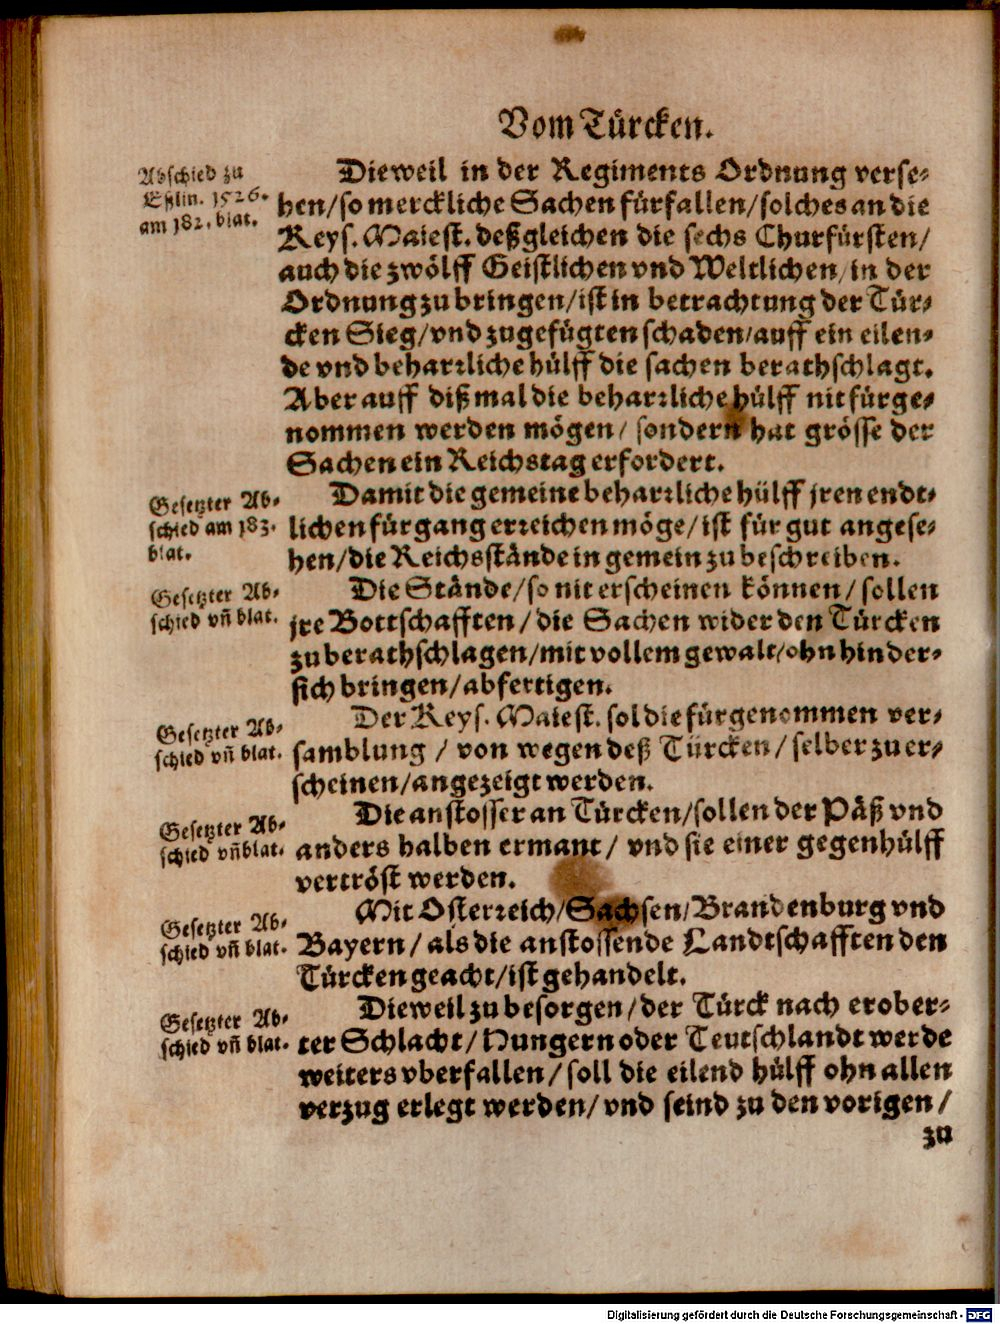 Vom Türcken.
Abschied zu
Eßlin. 1526.
am 182. blat.
Dieweil in der Regiments Ordnung verse-
hen/so merckliche Sachen fürfallen/solches an die
Keys. Maiest. deßgleichen die sechs Churfürsten/
auch die zwölff Geistlichen vnd Weltlichen/in der
Ordnung zu bringen/ist in betrachtung der Tür-
cken Sieg/vnd zugefügten schaden/auff ein eilen-
de vnd beharꝛliche hülff die sachen berathschlagt.
Aber auff diß mal die beharꝛliche hülff nit fürge-
nommen werden mögen/ sondern hat grösse der
Sachen ein Reichstag erfordert.
Gesetzter Ab-
schied am 183.
blat.
Damit die gemeine beharꝛliche hülff jren endt-
lichen fürgang erꝛeichen möge/ist für gut angese-
hen/die Reichsstände in gemein zu beschreiben.
Gesetzter Ab-
schied vñ blat.
Die Stände/so nit erscheinen können/sollen
jre Bottschafften/die Sachen wider den Türcken
zu berathschlagen/mit vollem gewalt/ohn hinder-
sich bringen/abfertigen.
Gesetzter Ab-
schied vñ blat.
Der Keys. Maiest. sol die fürgenommen ver-
samblung / von wegen deß Türcken/selber zu er-
scheinen/angezeigt werden.
Gesetzter Ab-
schied vñ blat.
Die anstosser an Türcken/sollen der Päß vnd
anders halben ermant/ vnd sie einer gegenhülff
vertröst werden.
Gesetzter Ab-
schied vñ blat.
Mit Osterꝛeich/Sachsen/Brandenburg vnd
Bayern/als die anstossende Landtschafften den
Türcken geacht/ist gehandelt.
Gesetzter Ab-
schied vñ blat.
Dieweil zu besorgen/der Türck nach erober-
ter Schlacht/Hungern oder Teutschlandt werde
weiters vberfallen/soll die eilend hülff ohn allen
verzug erlegt werden/vnd seind zu den vorigen/
zu
Digitalisierung gefördert durch die Deutsche Forschungsgemeinschaft - DFG